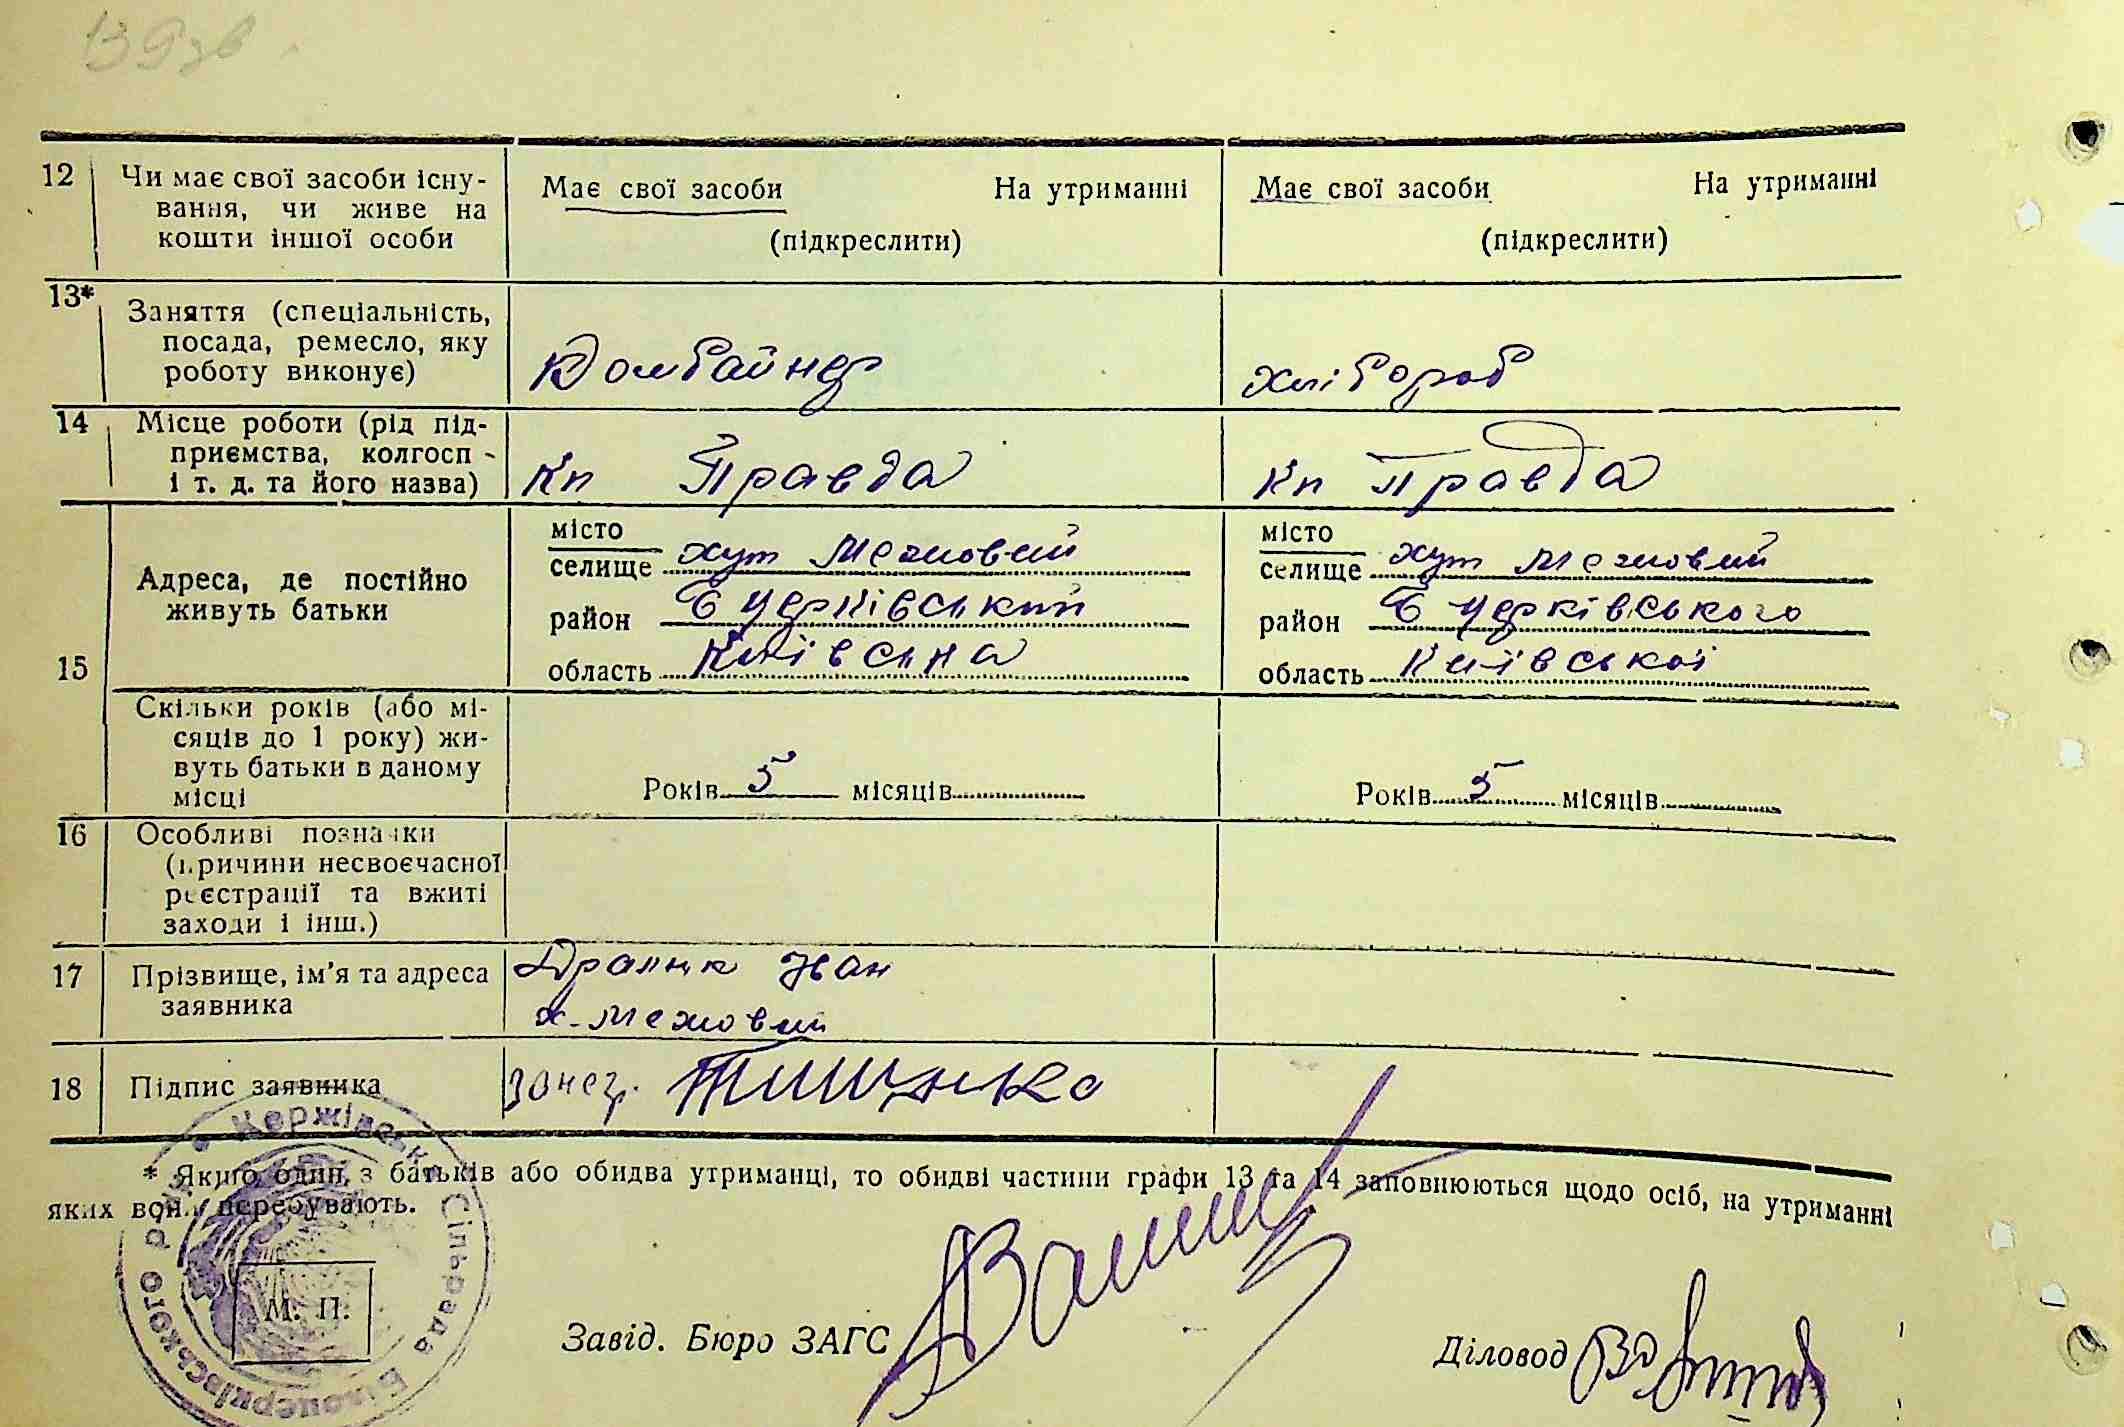 139зв.
12 Чи має свої засоби існу- Має свої засоби На утриманні Має свої засоби На утриманні
вання, чи живе на
кошти іншої особи (підкреслити) (підкреслити)
13* Заняття (спеціальність,
посада, ремесло, яку
роботу виконує) Комбайнер хлібороб
14 Місце роботи (рід під-
приємства, колгосп -
і т. д. та його назва) Кп Правда Кп Правда
15 Адреса, де постійно
живуть батьки
місто
селище хут Межовий
район Б Церківський
область Київська
місто
селище хут Межовий
район Б Церківського
область Київської
Скільки років (або мі-
сяців до 1 року) жи-
вуть батьки в даному
місці
Років 5 місяців Років 5 місяців
16 Особливі позначки
(причини несвоєчасної
реєстрації та вжиті
заходи і інш.)
17 Прізвище, ім'я та адреса Іван
заявника х. Межовий
18 Підпис заявника
* Якщо один з батьків або обидва утриманці, то обидві частини графи 13 та 14 заповнюються щодо осіб, на утриманні
яких вони перебувають.
Сільрада Білоцерківського
М. П.
Завід. Бюро ЗАГС
Діловод